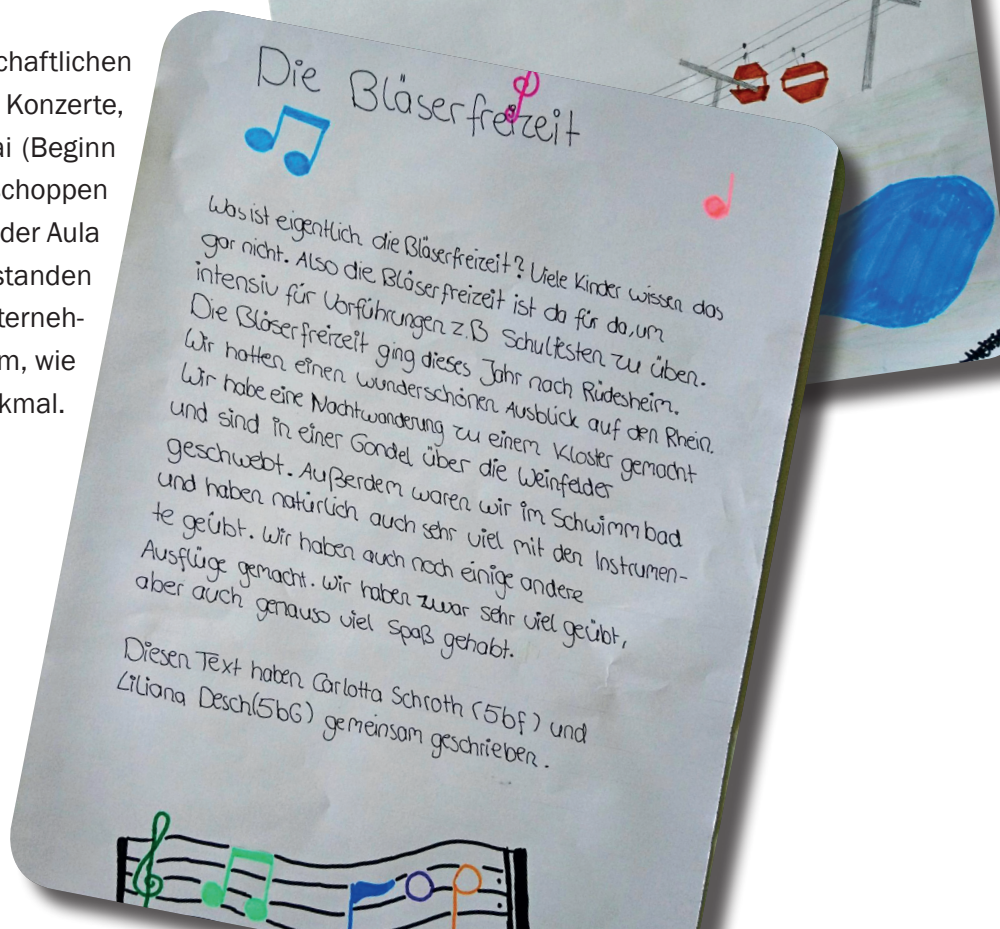 chaftlichen
Konzerte,
ai (Beginn
schoppen
der Aula
standen
terneh-
m, wie
kmal.
Die Bläserfreizeit
Was ist eigentlich die Bläserfreizeit? Viele Kinder wissen das
gar nicht. Also die Bläserfreizeit ist da für da, um
intensiv für Vorführungen z.B Schulfesten zu üben.
Die Bläserfreizeit ging dieses Jahr nach Rüdesheim.
Wir hatten einen wunderschönen Ausblick auf den Rhein.
Wir habe eine Nachtwanderung zu einem Kloster gemacht
und sind in einer Gondel über die Weinfelder
geschwebt. Außerdem waren wir im Schwimmbad
und haben natürlich auch sehr viel mit den Instrumen-
te geübt. Wir haben auch noch einige andere
Ausflüge gemacht. Wir haben zwar sehr viel geübt,
aber auch genauso viel Spaß gehabt.
Diesen Text haben Carlotta Schroth (5bf) und
Liliana Desch(5bG) gemeinsam geschrieben.